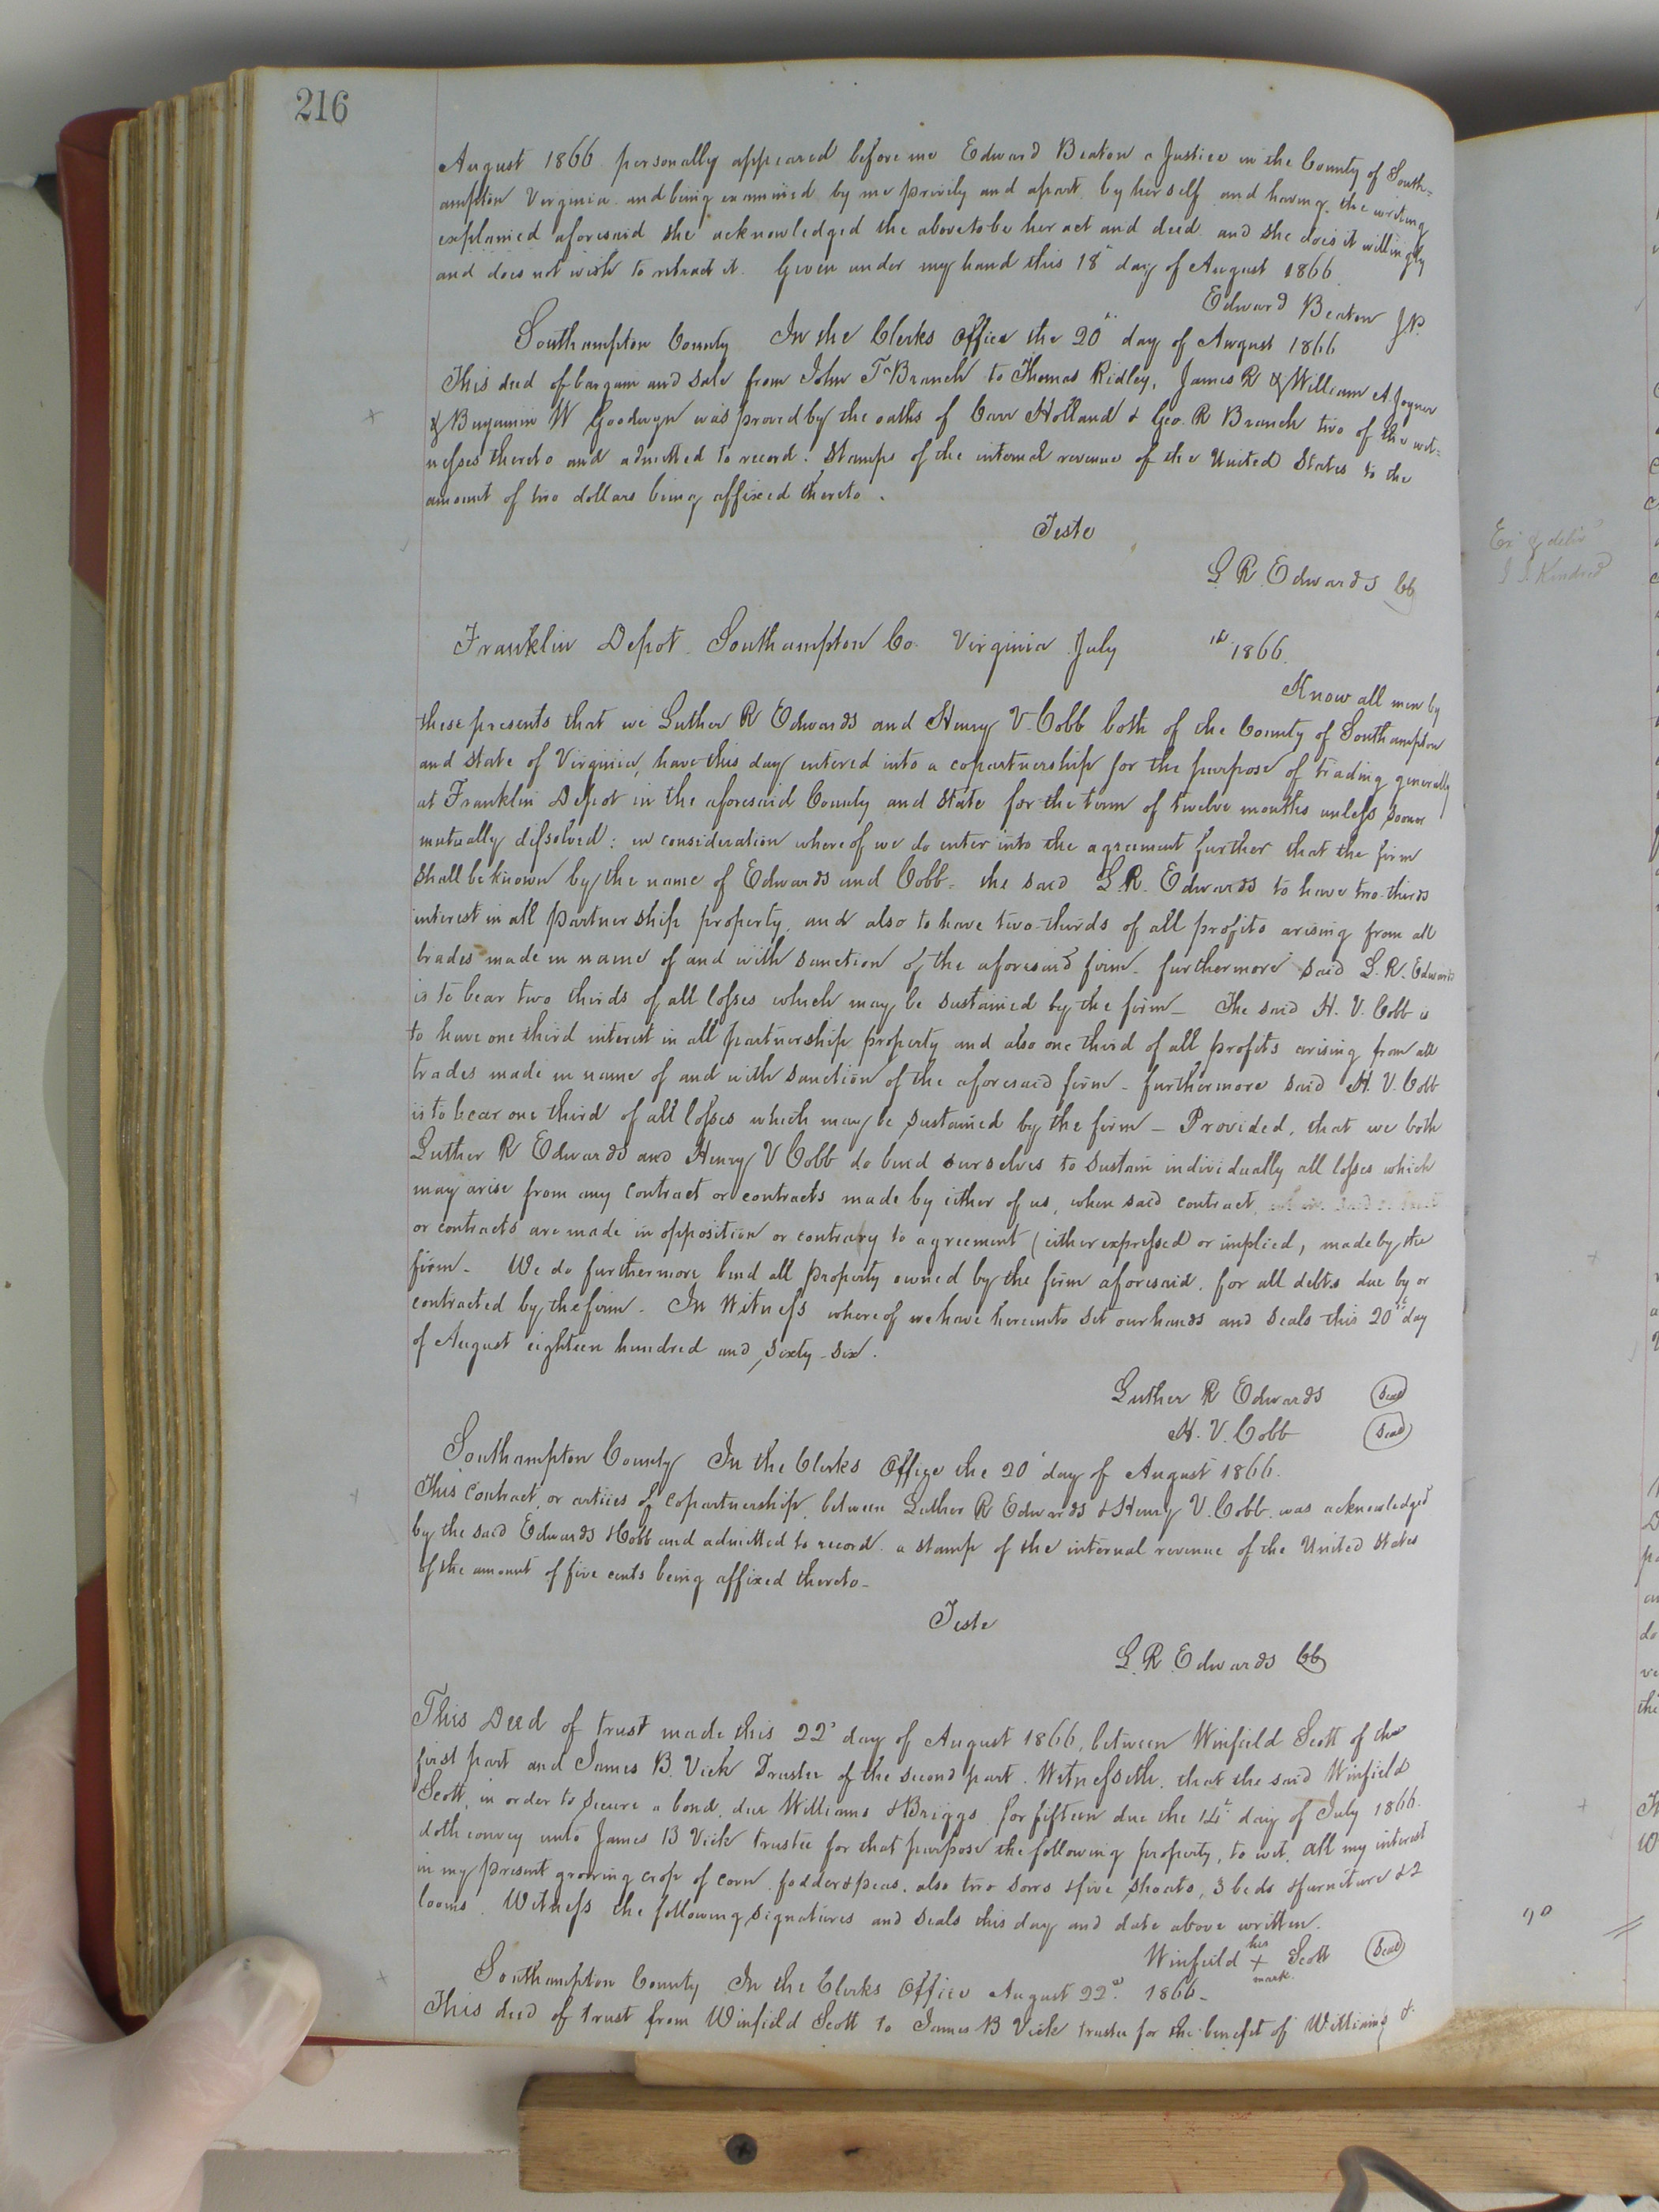 216
August 1866 personally appeared before me Edward Beaton a Justice in the County of South=
ampton Virginia and being examined by me privily and apart by herself and having the writing
explained aforesaid she acknowledged the above to be her act and deed and she does it willingly
and does not wish to retract it. Given under my hand this 18th day of August 1866
Edward Beaton JP.
Southampton County In the Clerks Office the 20th day of August 1866
This deed of bargain and sale from John T Branch to Thomas Ridley, James R & William A. Joyner
& Benjamin W Goodwyn was proved by the oaths of Carr Holland & Geo. R Branch two of the wit=
nesses thereto and admitted to record. Stamps of the internal revenue of the United States to the
amount of two dollars being affixed thereto.
Teste
L R. Edwards CC
Ex. & deld
Kindred
Franklin Depot. Southampton Co. Virginia July 1866.
Know all men by
these presents that we Luther R Edwards and Henry V. Cobb both of the County of Southampton
and State of Virginia, have this day entered into a copartnership for the purpose of trading generally
at Franklin Depot in the aforesaid County and State for the term of twelve months unless sooner
mutually dissolved: in consideration whereof we do enter into the agreement further that the firm
shall be known by the name of Edwards and Cobb- the said L.R. Edwards to have two-thirds
interest in all partnership property, and also to have two-thirds of all profits arising from all
trades made in name of and with sanction of the aforesaid firm- furthermore said L.R. Edwards
is to bear two thirds of all losses which may be sustained by the firm- The said H. V. Cobb is
to have one third interest in all partnership property and also one third of all profits arising from all
trades made in name of and with sanction of the aforesaid firm- furthermore said H. V. Cobb
is to bear one third of all losses which may be sustained by the firm- Provided, that we both
Luther R Edwards and Henry V Cobb do bind ourselves to sustain individually all losses which
may arise from any contract or contracts made by either of us, when said contract,
or contracts are made in opposition or contrary to agreement (either expressed or implied, made by the
firm- We do furthermore bind all property owned by the firm aforesaid, for all debts due by or
contracted by the firm. In Witness whereof we have hereunto set our hands and seals this 20th day
of August eighteen hundred and sixty-six.
Luther R Edwards Seal
H. V. Cobb Seal
Southampton County In the Clerks Office the 20 day of August 1866.
This contract, or articles of copartnership, between Luther R Edwards & Henry V. Cobb was acknowledged
by the said Edwards & Cobb and admitted to record a stamp of the internal revenue of the United States
of the amount of five cents being affixed thereto-
Teste
L. R. Edwards CC
This Deed of trust made this 22d day of August 1866, between Winfield Scott of the
first part and James B. Vick Trustee of the second part. Witnesseth, that the said Winfield
Scott, in order to secure a bond, due Williams & Briggs for fifteen due the 14th day of July 1866.
doth convey unto James B Vick trustee for that purpose the following property, to wit, all my interest
in my present growing crop of corn, fodder & peas, also two sows & five shoats, 3 beds & furniture & 2
looms. Witness the following signatures and seals this day and date above written.
Winfield his + mark. Scott Seal
Southampton County In the Clerks Office August 22d 1866-
This deed of trust from Winfield Scott to James B Vick trustee for the benefit of Williams &